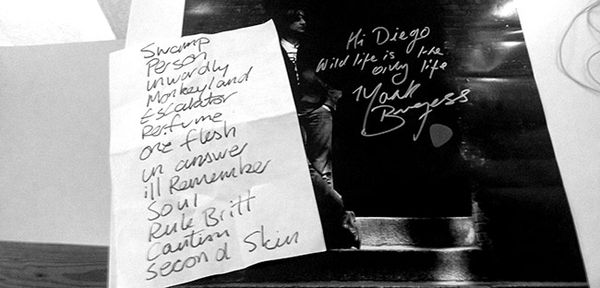 Swamp
Person
unwardly
Monkeyland
Escalator
Perfume
one flesh
un answer
ill Remember
Soul
Rule Britt
Caution
Second Skin
Hi Diego
Wild life is the
only life
Mark
Burgess